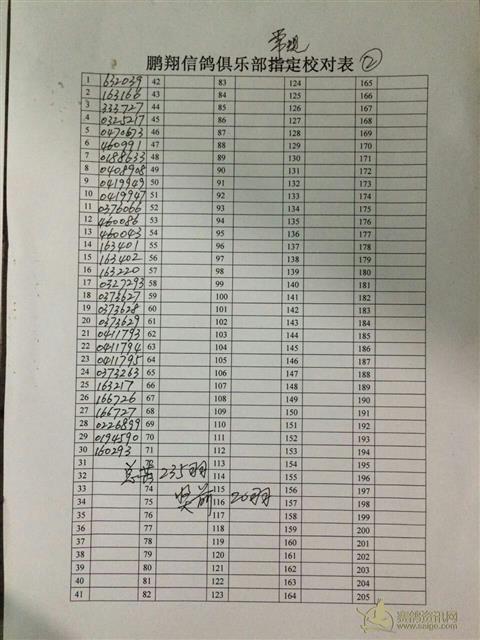 常规
鹏翔信鸽俱乐部指定校对表 ②
1 632039 42 83 124 165
2 163166 43 84 125 166
3 333727 44 85 126 167
4 0325217 45 86 127 168
5 0470673 46 87 128 169
6 460991 47 88 129 170
7 0188633 48 89 130 171
8 0408908 49 90 131 172
9 0419949 50 91 132 173
10 0419947 51 92 133 174
11 0376066 52 93 134 175
12 460086 53 94 135 176
13 460043 54 95 136 177
14 163401 55 96 137 178
15 163402 56 97 138 179
16 163220 57 98 139 180
17 0327293 58 99 140 181
18 0373627 59 100 141 182
19 0373628 60 101 142 183
20 0373629 61 102 143 184
21 0411793 62 103 144 185
22 0411794 63 104 145 186
23 0411795 64 105 146 187
24 0373263 65 106 147 188
25 163217 66 107 148 189
26 166726 67 108 149 190
27 166727 68 109 150 191
28 0226899 69 110 151 192
29 0194590 70 111 152 193
30 160293 71 112 153 194
31 113 154 195
32 235羽 114 155 196
33 74 115 156 197
34 75 奖前 116 20羽 157 198
35 76 117 158 199
36 77 118 159 200
37 78 119 160 201
38 79 120 161 202
39 80 121 162 203
40 81 122 163 204
41 82 123 164 205
赛鸽资讯网
www.saige.com